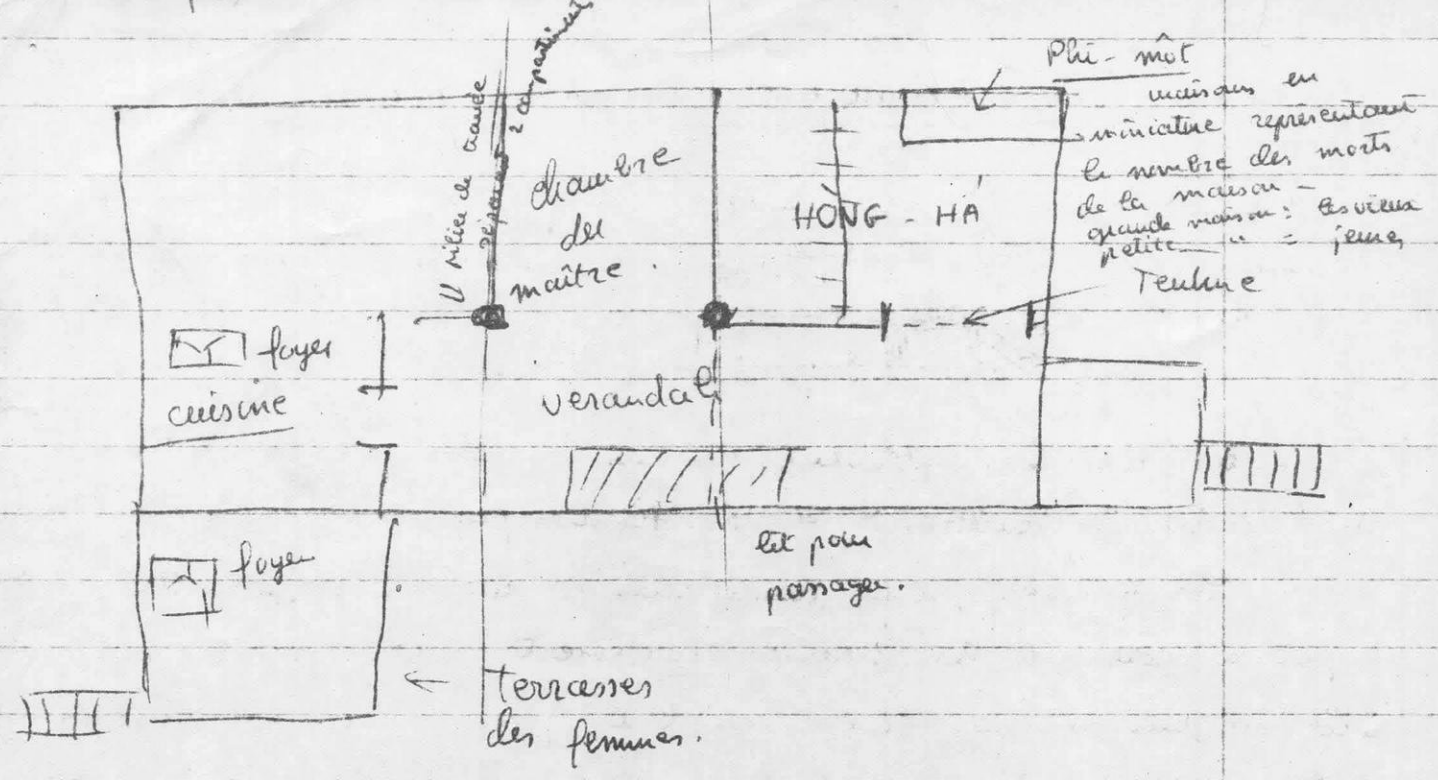 Phi-môt
maisons en
miniature représentant
le nombre des morts
de la maison -
grande maison : les vieux
petite — " = jeunes
Tenture
milieu de
séparant 2 compartiments
chambre
du
maître.
HÒNG - HÁ
foyer
cuisine
verandah
lit pour
passager.
foyer
terrasses
des femmes.